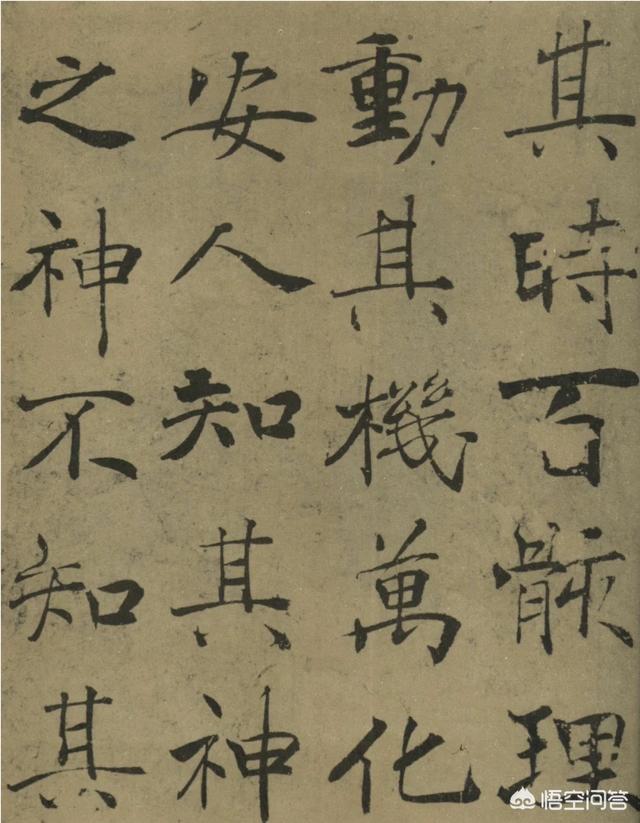 其時百骸理
動其機萬化
安人知其神
之神不知其
悟空问答